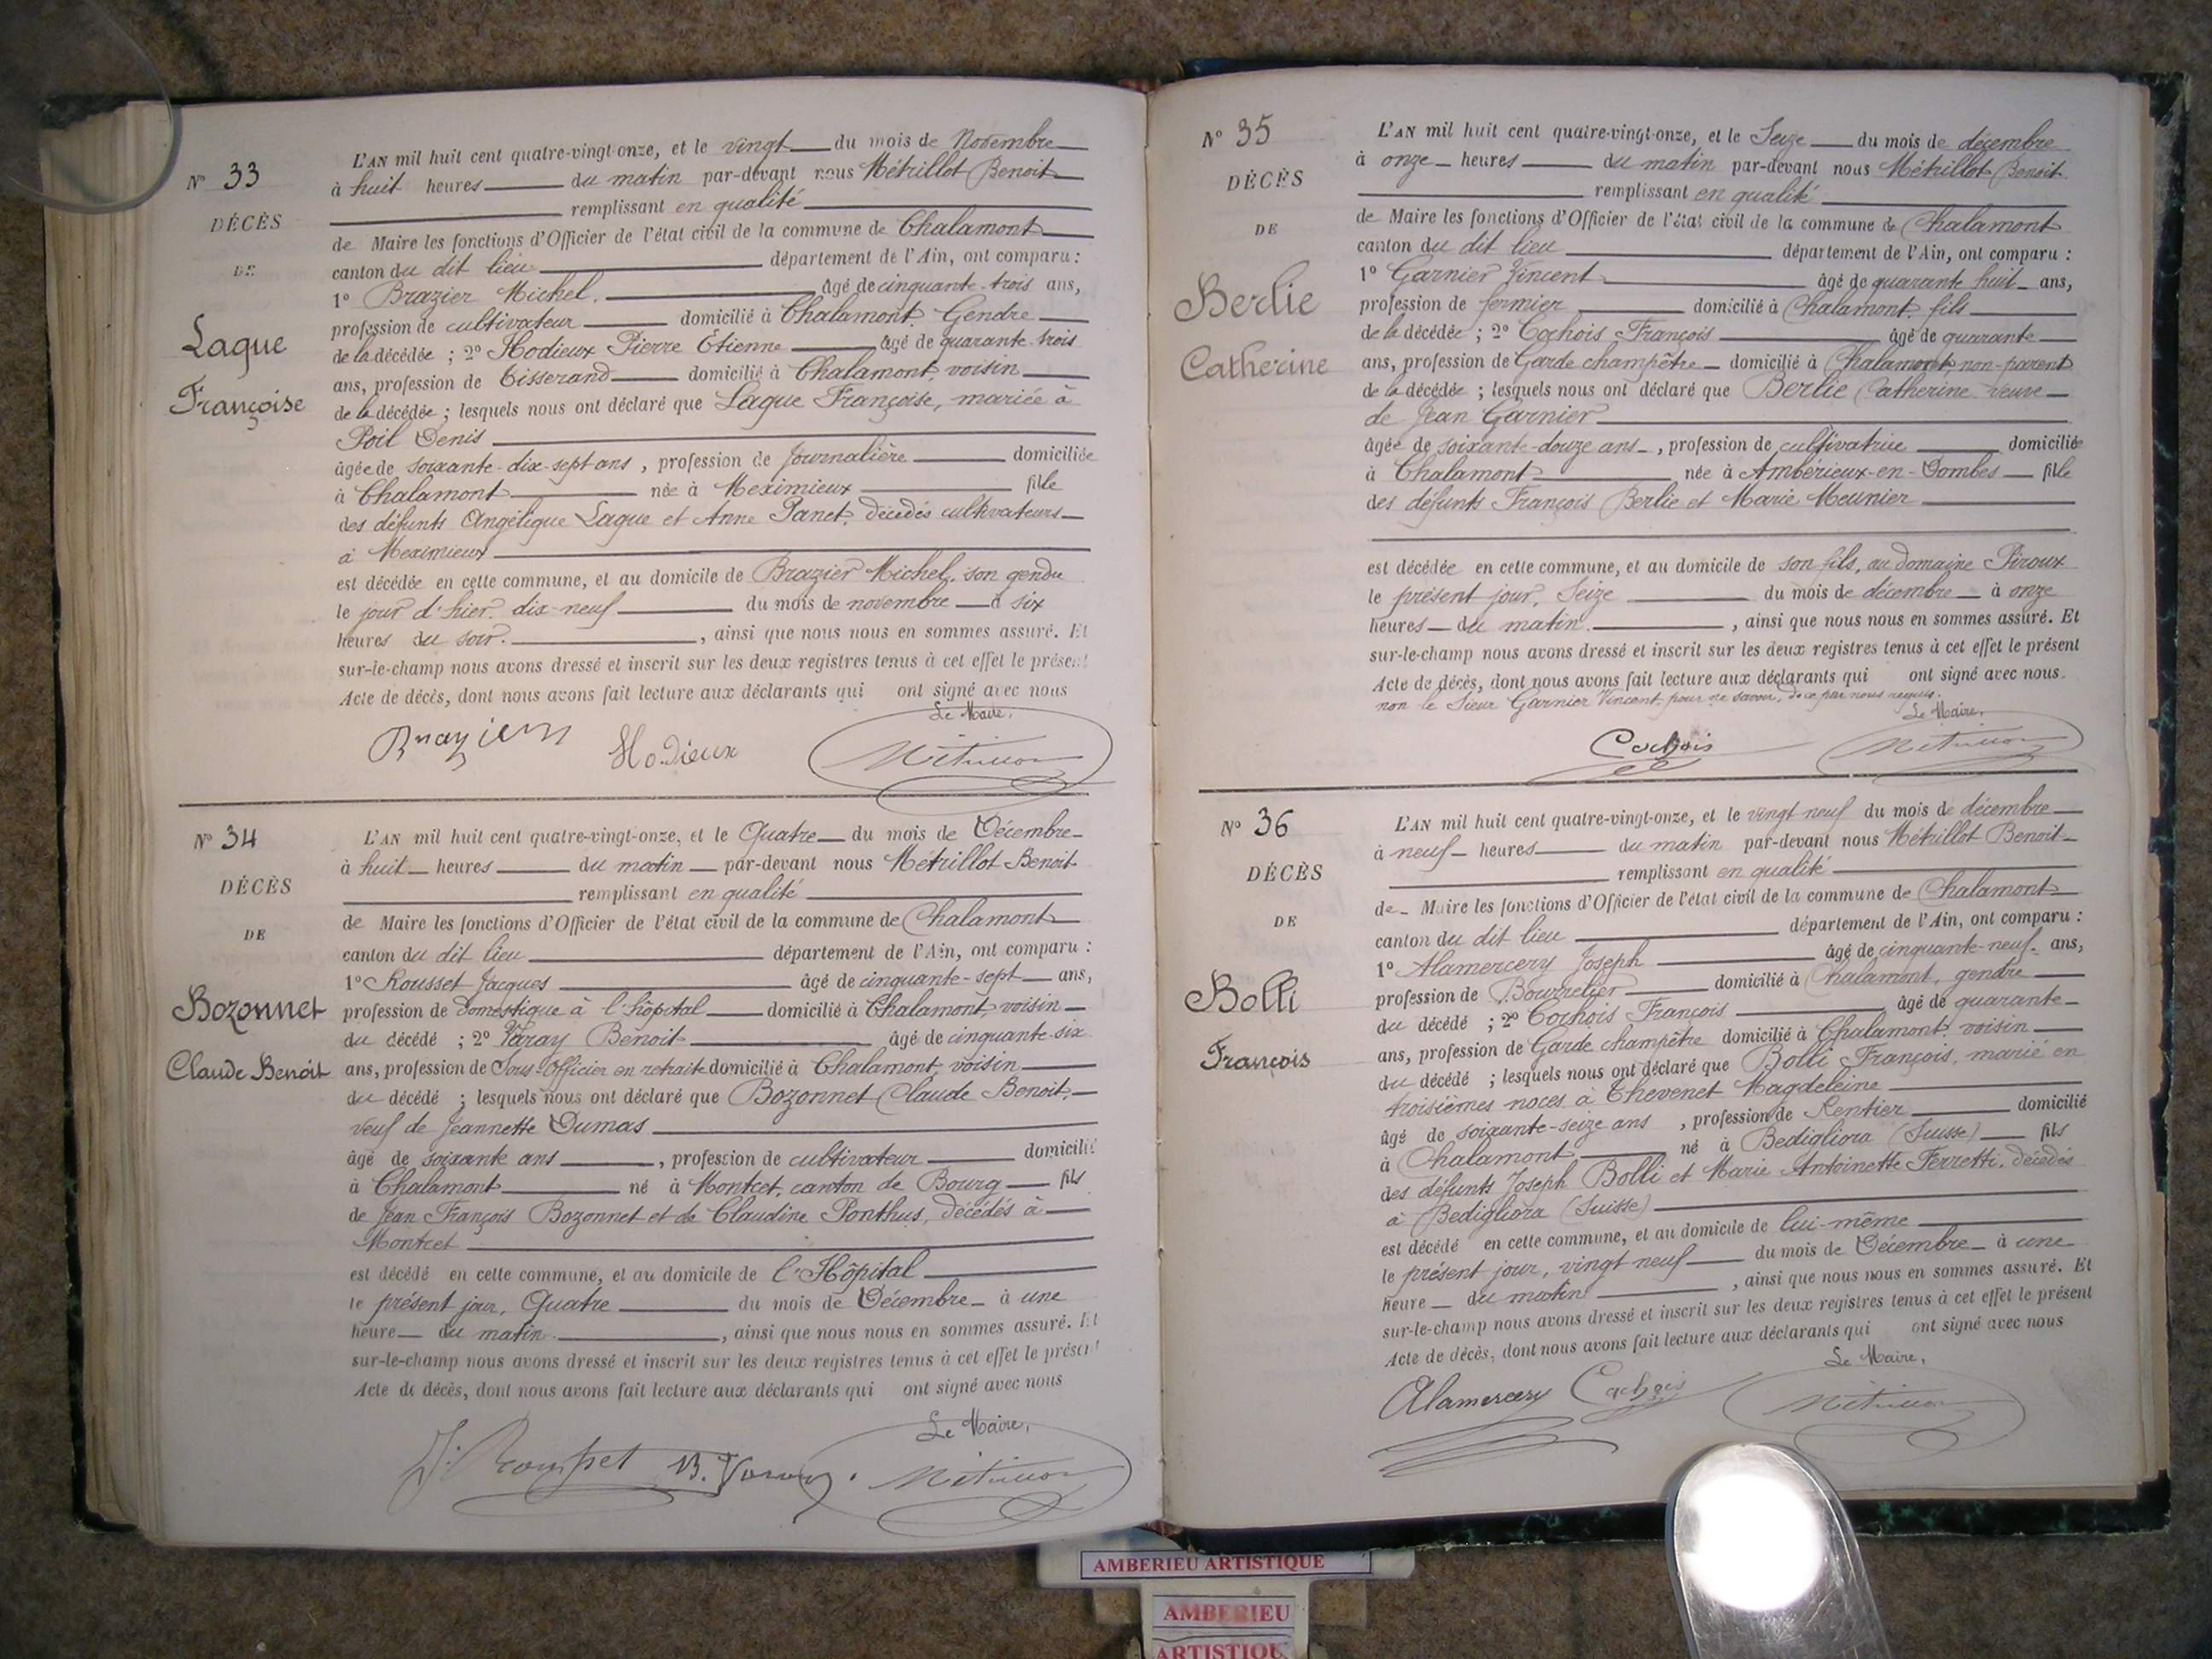 N° 33
DÉCÈS
DE
Laque
Françoise
L'AN mil huit cent quatre-vingt-onze, et le vingt du mois de Novembre
à huit heures du matin par-devant nous Métrillot Benoit
remplissant en qualité
de Maire les fonctions d'Officier de l'état civil de la commune de Chalamont
canton du dit lieu département de l'Ain, ont comparu :
1° Brazier Michel. âgé de cinquante-trois ans,
profession de cultivateur domicilié à Chalamont. Gendre
de la décédée ; 2° Hodieux Pierre Étienne âgé de quarante-trois
ans, profession de tisserand domicilié à Chalamont, voisin
de la décédée ; lesquels nous ont déclaré que Laque Françoise, mariée à
Poil Denis
âgée de soixante-dix-sept ans, profession de Journalière domiciliée
à Chalamont née à Meximieux fille
des défunts Angélique Laque et Anne Panet, décédés cultivateurs
à Meximieux
est décédée en cette commune, et au domicile de Brazier Michel, son gendre
le jour d'hier, dix-neuf du mois de novembre à six
heures du soir. , ainsi que nous nous en sommes assuré. Et
sur-le-champ nous avons dressé et inscrit sur les deux registres tenus à cet effet le présent
Acte de décès, dont nous avons fait lecture aux déclarants qui ont signé avec nous
Le Maire,
Brazier Hodieux Métrillot
N° 34
DÉCÈS
DE
Bozonnet
Claude Benoit
L'AN mil huit cent quatre-vingt-onze, et le Quatre du mois de Décembre
à huit heures du matin par-devant nous Métrillot Benoit
remplissant en qualité
de Maire les fonctions d'Officier de l'état civil de la commune de Chalamont
canton du dit lieu département de l'Ain, ont comparu :
1° Rousset Jacques âgé de cinquante-sept ans,
profession de domestique à l'hôpital domicilié à Chalamont voisin
du décédé ; 2° Varay Benoit âgé de cinquante six
ans, profession de Sous-Officier en retraite domicilié à Chalamont, voisin
du décédé ; lesquels nous ont déclaré que Bozonnet Claude Benoit,
veuf de Jeannette Dumas
âgé de soixante ans , profession de cultivateur domicilié
à Chalamont né à Montcet, canton de Bourg fils
de Jean François Bozonnet et de Claudine Ponthus, décédés à
Montcet
est décédé en cette commune, et au domicile de l'Hôpital
le présent jour, Quatre du mois de Décembre à une
heure du matin. , ainsi que nous nous en sommes assuré. Et
sur-le-champ nous avons dressé et inscrit sur les deux registres tenus à cet effet le présent
Acte de décès, dont nous avons fait lecture aux déclarants qui ont signé avec nous
Le Maire,
J. Rousset B. Varay. Métrillot
N° 35
DÉCÈS
DE
Berlie
Catherine
L'AN mil huit cent quatre-vingt-onze, et le Seize du mois de décembre
à onze heures du matin par-devant nous Métrillot Benoit
remplissant en qualité
de Maire les fonctions d'Officier de l'état civil de la commune de Chalamont
canton du dit lieu département de l'Ain, ont comparu :
1° Garnier Vincent âgé de quarante huit ans,
profession de fermier domicilié à Chalamont, fils
de la décédée ; 2° Cochois François âgé de quarante
ans, profession de Garde champêtre domicilié à Chalamont, non-parent
de la décédée ; lesquels nous ont déclaré que Berlie Catherine veuve
de Jean Garnier
âgée de soixante-douze ans , profession de cultivatrice domiciliée
à Chalamont née à Ambérieux-en-Dombes fille
des défunts François Berlie et Marie Meunier
est décédée en cette commune, et au domicile de son fils, au domaine Piroux
le présent jour, Seize du mois de décembre à onze
heures du matin. , ainsi que nous nous en sommes assuré. Et
sur-le-champ nous avons dressé et inscrit sur les deux registres tenus à cet effet le présent
Acte de décès, dont nous avons fait lecture aux déclarants qui ont signé avec nous.
non le Sieur Garnier Vincent pour ne savoir, de ce par nous requis.
Le Maire,
Cochois Métrillot
N° 36
DÉCÈS
DE
Bolli
François
L'AN mil huit cent quatre-vingt-onze, et le vingt neuf du mois de décembre
à neuf heures du matin par-devant nous Métrillot Benoit
remplissant en qualité
de Maire les fonctions d'Officier de l'état civil de la commune de Chalamont
canton du dit lieu département de l'Ain, ont comparu :
1° Alamercery Joseph âgé de cinquante-neuf ans,
profession de Bourrelier domicilié à Chalamont, gendre
du décédé ; 2° Cochois François âgé de quarante
ans, profession de Garde champêtre domicilié à Chalamont voisin
du décédé ; lesquels nous ont déclaré que Bolli François, marié en
troisièmes noces à Thevenet Magdeleine
âgé de soixante-seize ans , profession de Rentier domicilié
à Chalamont né à Bedigliora (Suisse) fils
des défunts Joseph Bolli et Marie Antoinette Ferretti, décédés
à Bedigliora (Suisse)
est décédé en cette commune, et au domicile de lui-même
le présent jour, vingt neuf du mois de Décembre à une
heure du matin , ainsi que nous nous en sommes assuré. Et
sur-le-champ nous avons dressé et inscrit sur les deux registres tenus à cet effet le présent
Acte de décès, dont nous avons fait lecture aux déclarants qui ont signé avec nous
Le Maire,
Alamercery Cochois Métrillot
AMBERIEU ARTISTIQUE
AMBERIEU
ARTISTIQU